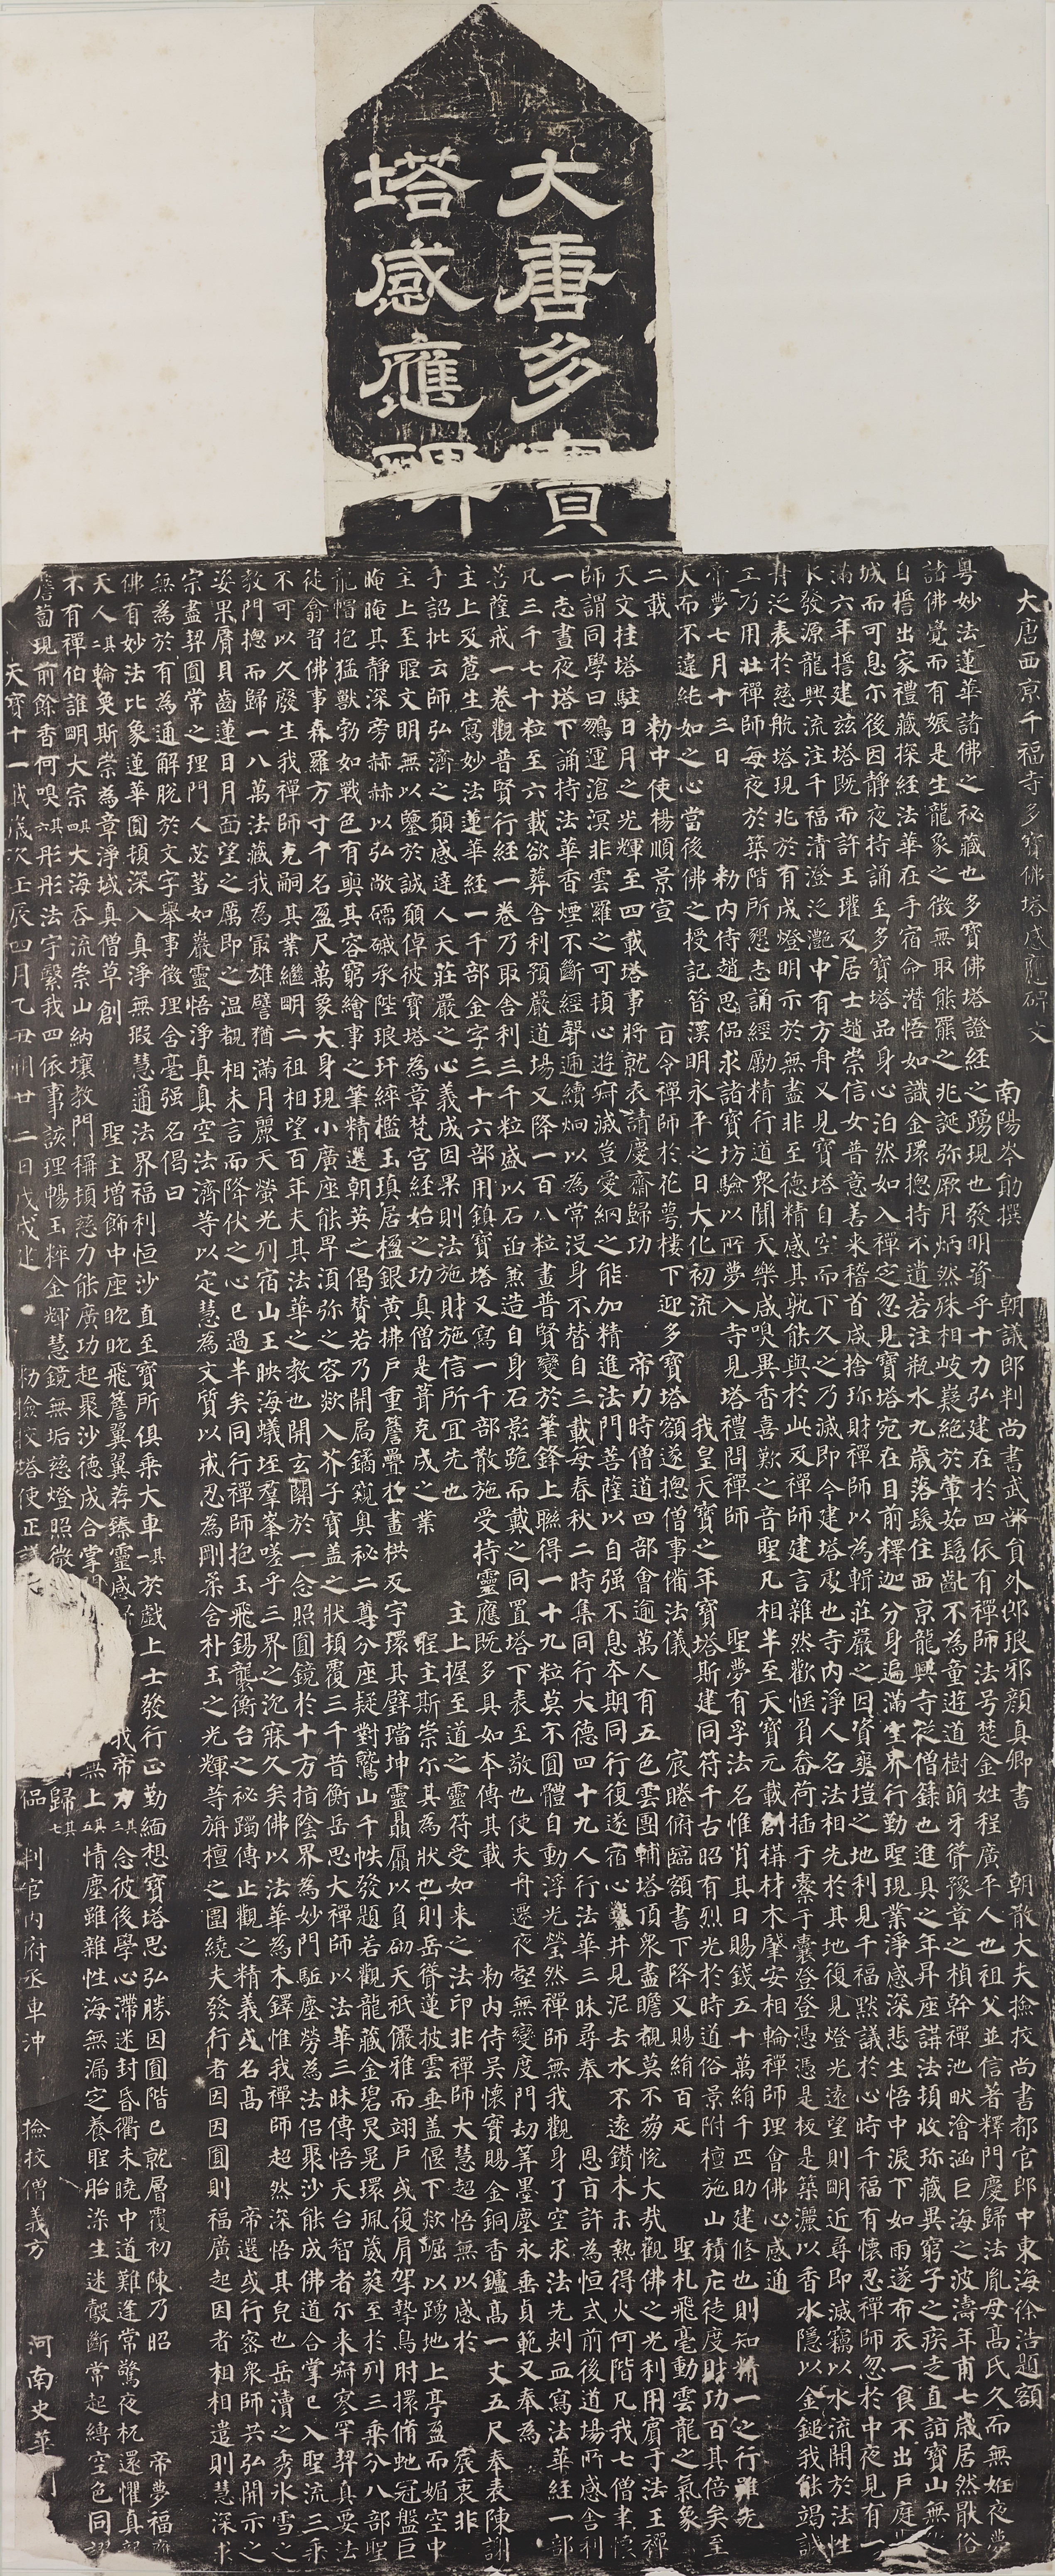 大唐多寶
塔感應碑
大唐西京千福寺多寶佛塔感應碑文 南陽岑勛撰 朝議郎判尚書武部員外郎琅邪顏真卿書 朝散大夫撿校尚書都官郎中東海徐浩題額
粤妙法蓮華諸佛之秘藏也多寶佛塔證經之踴現也發明資乎十力弘建在於四依有禪師法号楚金姓程廣平人也祖父並信著釋門慶歸法胤母高氏久而無姙夜夢
諸佛覺而有娠是生龍象之徵無取熊羆之兆誕弥厥月炳然殊相岐嶷絕於葷茹髫齔不為童遊道樹萌牙聳豫章之楨幹禪池畎澮涵巨海之波濤年甫七歲居然猒俗
自誓出家禮藏探經法華在手宿命潛悟如識金環揔持不遺若注瓶水九歲落髮住西京龍興寺從僧籙也進具之年昇座講法頓收珍藏異窮子之疾走直詣寶山無
城而可息尒後因静夜持誦至多寶塔品身心泊然如入禪定忽見寶塔宛在目前釋迦分身遍滿空界行勤聖現業淨感深悲生悟中淚下如雨遂布衣一食不出戶庭
滿六年誓建茲塔既而許王瓘及居士趙崇信女普意善來稽首咸捨珍財禪師以為輯莊嚴之因資爽塏之地利見千福默議於心時千福有懷忍禪師忽於中夜見有一
水發源龍興流注千福清澄泛灧中有方舟又見寶塔自空而下久之乃滅即今建塔處也寺內淨人名法相先於其地復見燈光遠望則明近尋即滅竊以水流開於法性
舟泛表於慈航塔現兆於有成燈明示於無盡非至德精感其孰能與於此及禪師建言雜然歡愜負畚荷插于橐于囊登登憑憑是板是築灑以香水隱以金鎚我能竭誠
工乃用壯禪師每夜於築階所懇志誦經勵精行道眾聞天樂咸嗅異香喜歎之音聖凡相半至天寶元載創構材木肇安相輪禪師理會佛心感通
帝夢七月十三日 勑內侍趙思偘求諸寶坊驗以所夢入寺見塔禮問禪師 聖夢有孚法名惟肖其日賜錢五十萬絹千匹助建修也則知精一之行雖先
天而不違純如之心當後佛之授記昔漢明永平之日大化初流 我皇天寶之年寶塔斯建同符千古昭有烈光於時道俗景附檀施山積庀徒度財功百其倍矣至
二載 勑中使楊順景宣 旨令禪師於花萼樓下迎多寶塔額遂揔僧事備法儀 宸眷俯臨額書下降又賜絹百疋 聖札飛毫動雲龍之氣象
天文挂塔駐日月之光輝至四載塔事將就表請慶齋歸功 帝力時僧道四部會逾萬人有五色雲團輔塔頂眾盡瞻覩莫不崩悅大哉觀佛之光利用賓于法王禪
師謂同學曰鵬運滄溟非雲羅之可頓心遊寂滅豈愛網之能加精進法門菩薩以自强不息本期同行復遂宿心鑿井見泥去水不遠鑽木未熱得火何階凡我七僧聿懷
一志晝夜塔下誦持法華香煙不斷經聲遞續炯以為常沒身不替自三載每春秋二時集同行大德四十九人行法華三昧尋奉 恩旨許為恒式前後道場所感舍利
凡三千七十粒至六載欲葬舍利預嚴道場又降一百八粒畫普賢變於筆鋒上聯得一十九粒莫不圓體自動浮光瑩然禪師無我觀身了空求法先刺血寫法華經一部
菩薩戒一卷觀普賢行經一卷乃取舍利三千粒盛以石函兼造自身石影跪而戴之同置塔下表至敬也使夫舟遷夜壑無變度門劫筭墨塵永垂貞範又奉為
主上及蒼生寫妙法蓮華經一千部金字三十六部用鎮寶塔又寫一千部散施受持靈應既多具如本傳其載 勑內侍吳懷實賜金銅香鑪高一丈五尺奉表陳謝
手詔批云師弘濟之願感達人天莊嚴之心義成因果則法施財施信所宜先也 主上握至道之靈符受如來之法印非禪師大慧超悟無以感於 宸衷非
主上至聖文明無以鑒於誠願倬彼寶塔為章梵宮經始之功真僧是葺克成之業 聖主斯崇尒其為狀也則岳聳蓮披雲垂盖偃下欻崛以踴地上亭盈而媚空中
晻晻其静深旁赫赫以弘敞礝磩承陛琅玕綷檻玉瑱居楹銀黃拂戶重檐疊於畫栱反宇環其璧璫坤靈贔屓以負砌天祇儼雅而翊戶或復肩挐摯鳥肘擐脩蛇冠盤巨
龍帽抱猛獸勃如戰色有奭其容窮繪事之筆精選朝英之偈贊若乃開扃鐍窺奧秘二尊分座疑對鷲山千帙發題若觀龍藏金碧炅晃環珮葳蕤至於列三乘分八部聖
徒翕習佛事森羅方寸千名盈尺萬象大身現小廣座能卑須弥之容欻入芥子寶盖之狀頓覆三千昔衡岳思大禪師以法華三昧傳悟天台智者尒來寂寥罕契真要法
不可以久廢生我禪師克嗣其業繼明二祖相望百年夫其法華之教也開玄關於一念照圓鏡於十方指陰界為妙門駈塵勞為法侶聚沙能成佛道合掌已入聖流三乘
教門揔而歸一八萬法藏我為最雄譬猶滿月麗天螢光列宿山王映海蟻垤群峯嗟乎三界之沉寐久矣佛以法華為木鐸惟我禪師超然深悟其皃也岳瀆之秀冰雪之
姿果脣貝齒蓮目月面望之厲即之温覩相未言而降伏之心已過半矣同行禪師抱玉飛錫襲衡台之秘躅傳止觀之精義或名高 帝選或行密眾師共弘開示之
宗盡契圓常之理門人苾蒭如巖靈悟淨真真空法濟等以定慧為文質以戒忍為剛柔含朴玉之光輝等旃檀之圍繞夫發行者因因圓則福廣起因者相相遣則慧深求
無為於有為通解脫於文字舉事徵理含毫强名偈曰
佛有妙法比象蓮華圓頓深入真淨無瑕慧通法界福利恒沙直至寶所俱乘大車其一於戲上士發行正勤緬想寶塔思弘勝因圓階已就層覆初陳乃昭 帝夢福應
天人其二輪奐斯崇為章淨域真僧草創 聖主增飾中座眈眈飛檐翼翼荐臻靈感我帝力其三念彼後學心滯迷封昏衢未曉中道難逢常驚夜枕還懼真
不有禪伯誰明大宗其四大海吞流崇山納壤教門稱頓慈力能廣功起聚沙德成合掌無上其五情塵雖雜性海無漏定養聖胎染生迷鷇斷常起縛空色同謬
薝蔔現前餘香何嗅其六彤彤法宇繄我四依事該理暢玉粹金輝慧鏡無垢慈燈照微歸其七
天寶十一載歲次壬辰四月乙丑朔廿二日戊戌建 勑撿校塔使正議偘 判官內府丞車沖 撿校僧義方 河南史華